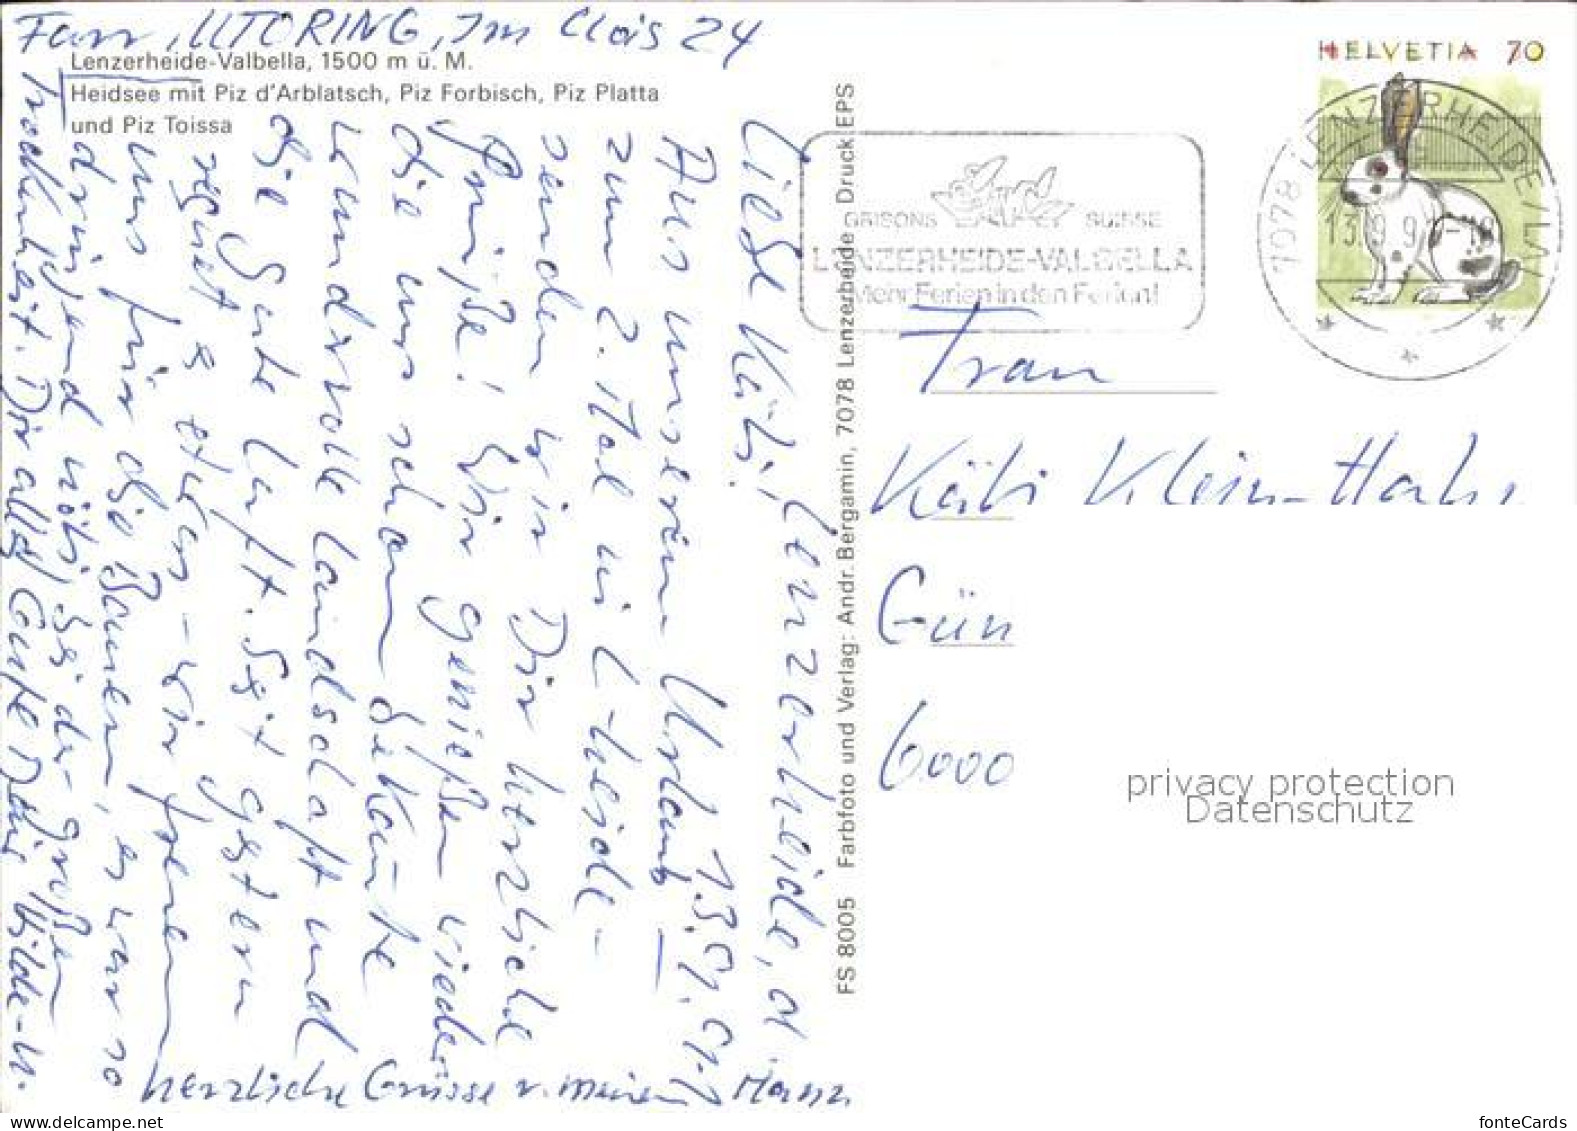 Fam. UTORING, Im Clois 24
Lenzerheide-Valbella, 1500 m ü. M.
Heidsee mit Piz d'Arblatsch, Piz Forbisch, Piz Platta
und Piz Toissa
HELVETIA 70
7078 LENZERHEIDE/LAI
13.9.91-18
GRISONS SUISSE
LENZERHEIDE-VALBELLA
Mehr Ferien in den Ferien!
Lenzerheide, d. 13.9.91
Liebe Käbi!
Aus unserem Urlaub –
zum 2. Mal in L-heide –
senden wir Dir herzliche
Grüße! Wir genießen wieder
die uns schon bekannte
wundervolle Landschaft und
die gute Luft. Seit gestern
regnet es etwas – wir freuen
uns für die Bauern, es war so
dringend nötig bei der großen
Trockenheit. Dir alles Gute Deine Hilde-M.
herzliche Grüsse v. meinem Hans
FS 8005 Farbfoto und Verlag: Andr. Bergamin, 7078 Lenzerheide Druck: EPS
Frau
Käbi Klein-Hahs
Gün
6000
privacy protection
Datenschutz
fonteCards